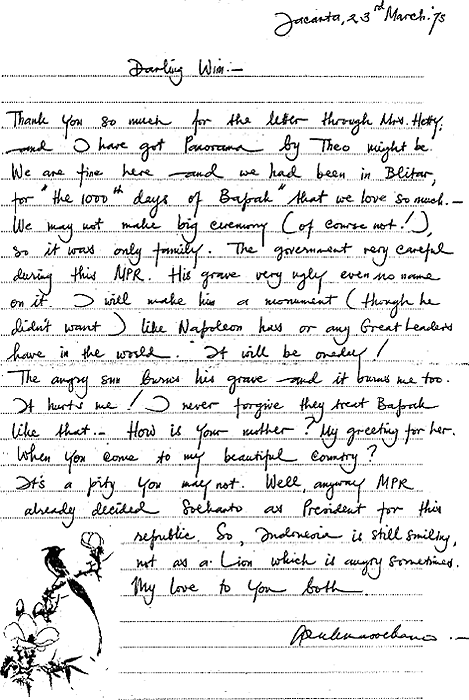 Jacarta, 23rd March '73
Darling Wim:—
Thank you so much for the letter through Mrs. Hetty;
and I have got Panorama by Theo might be.
We are fine here and we had been in Blitar,
for "the 1000th days of Bapak" that we love so much.—
We may not make big ceremony (of course not!),
so it was only family. The government very careful
during this MPR. His grave very ugly even no name
on it. I will make him a monument (though he
didn't want) like Napoleon has or any Great Leaders
have in the world. It will be oneday!
The angry sun burns his grave and it burns me too.
It hurts me! I never forgive they treat Bapak
like that.— How is your mother? My greeting for her.
When you come to my beautiful country?
It's a pity you may not. Well, anyway MPR
already decided Soeharto as President for this
republic. So, Indonesia is still smiling,
not as a Lion which is angry sometimes.
My love to you both.